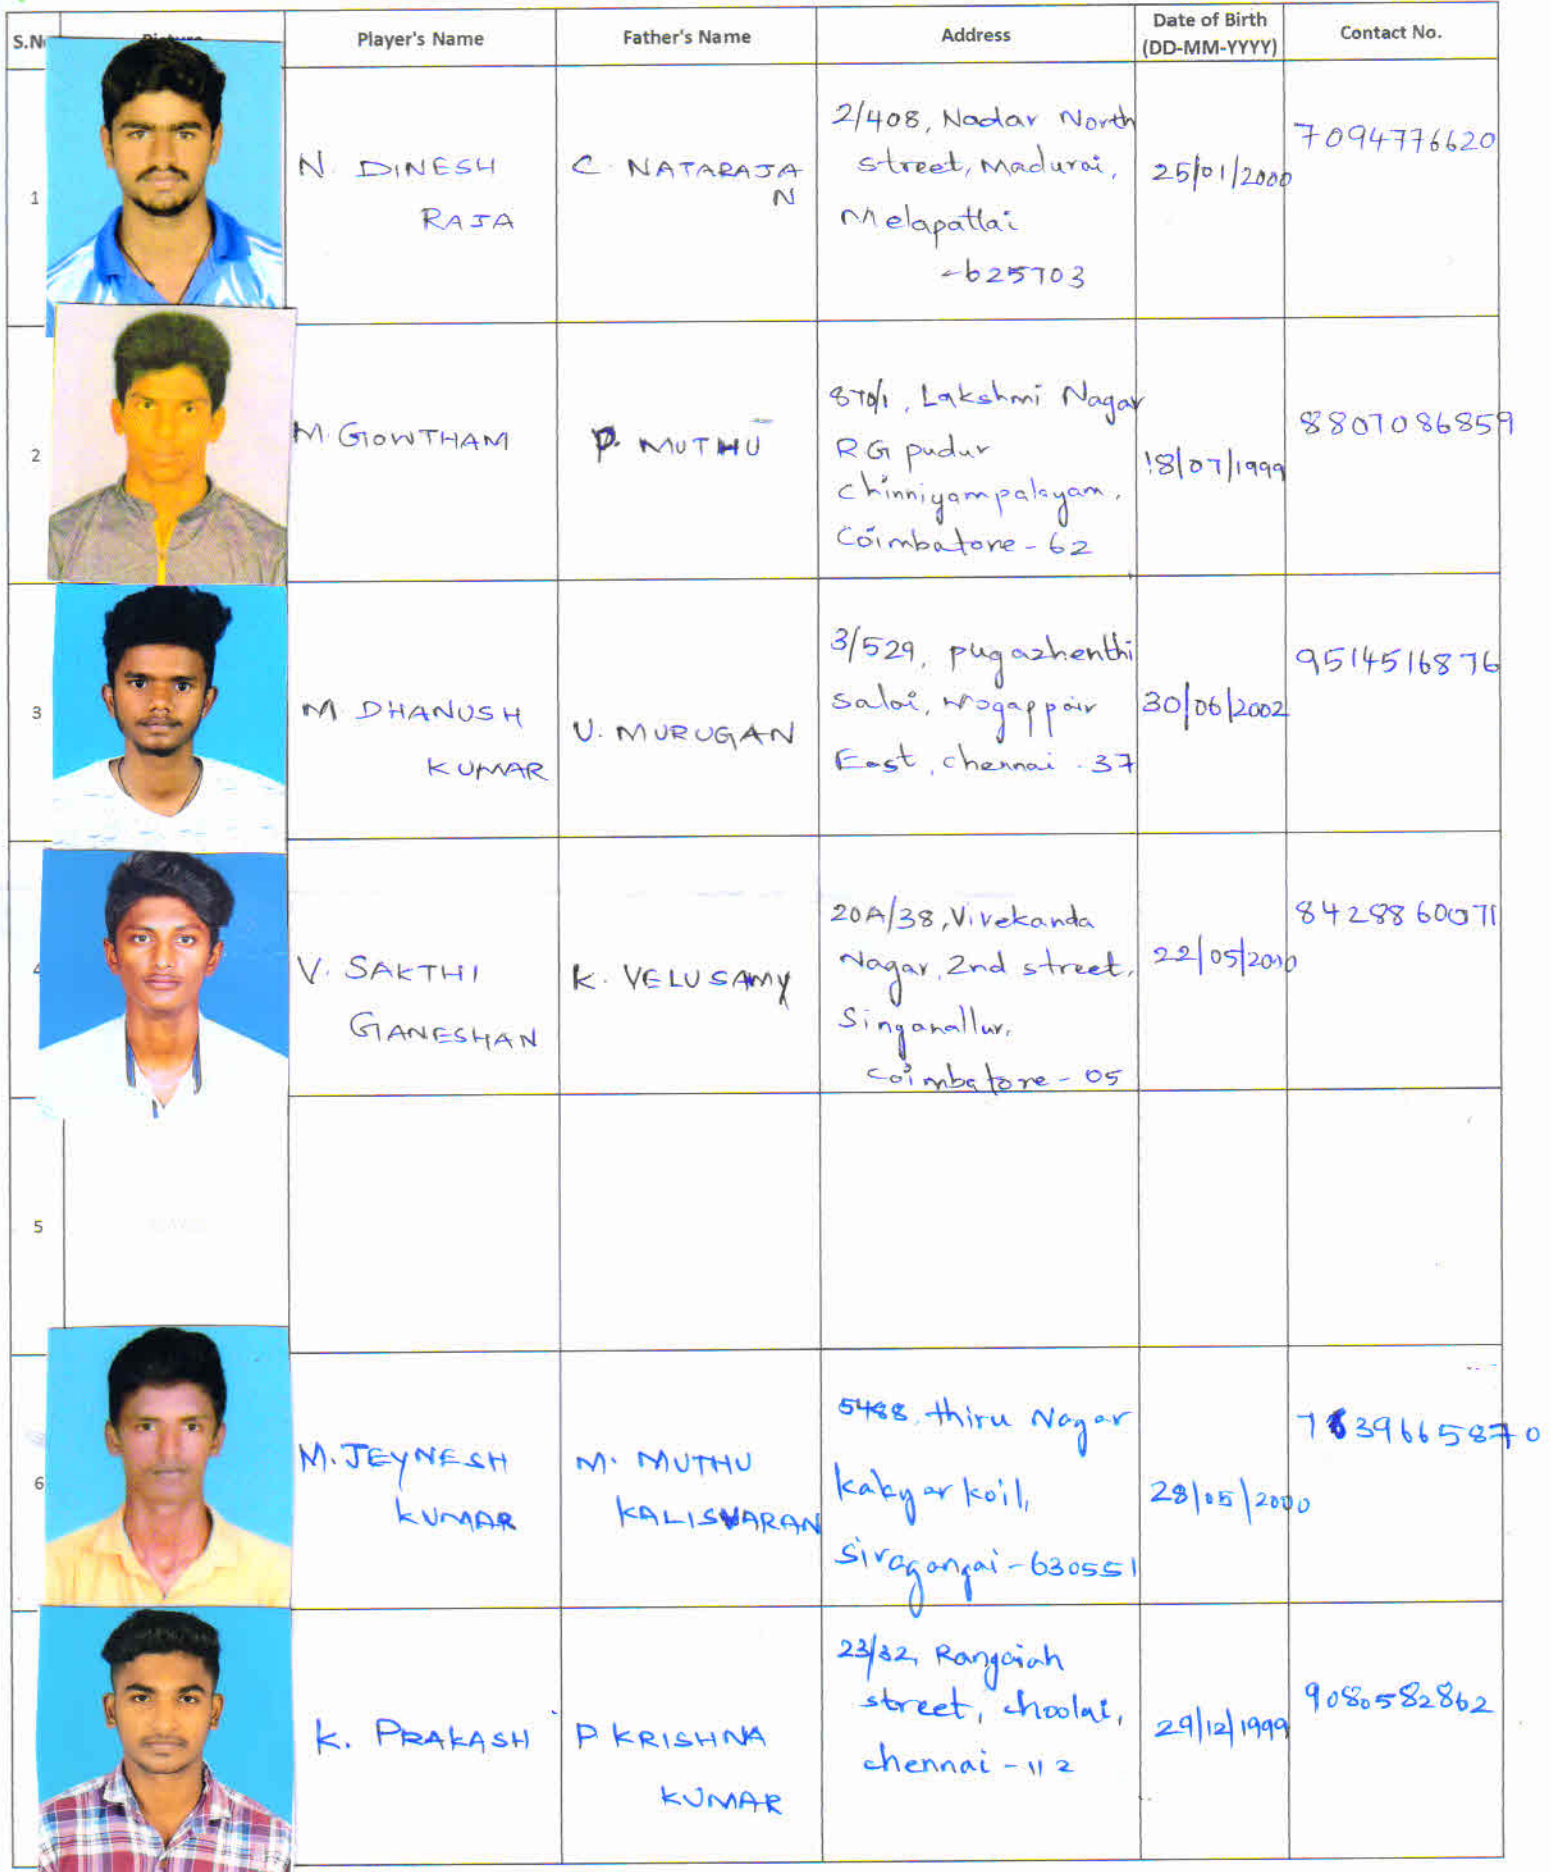 Player's Name
Father's Name
Address
Date of Birth
(DD-MM-YYYY)
Contact No.
1
N. DINESH
RAJA
C. NATARAJA
N
2/408, Nadar North
street, Madurai,
Melapattai
-625703
25/01/2000
7094776620
2
M. GOWTHAM
P. MUTHU
870/1, Lakshmi Nagar
R.G pudur
chinniyampalayam,
Coimbatore - 62
18/07/1999
8807086859
3
M DHANUSH
KUMAR
U. MURUGAN
3/529, pugazhenthi
salai, mogappair
East, chennai - 37
30/06/2002
9514516876
4
V. SAKTHI
GANESHAN
K. VELUSAMY
20A/38, Vivekanda
Nagar, 2nd street,
Singanallur,
coimbatore - 05
22/05/2000
8428860071
5
6
M. JEYNESH
KUMAR
M. MUTHU
KALISVARAN
5488, thiru Nagar
koil,
Sivagangai - 630551
28/05/2000
7639665870
K. PRAKASH
P KRISHNA
KUMAR
23/32, Rangaiah
street, choolai,
chennai - 112
29/12/1999
9080582862